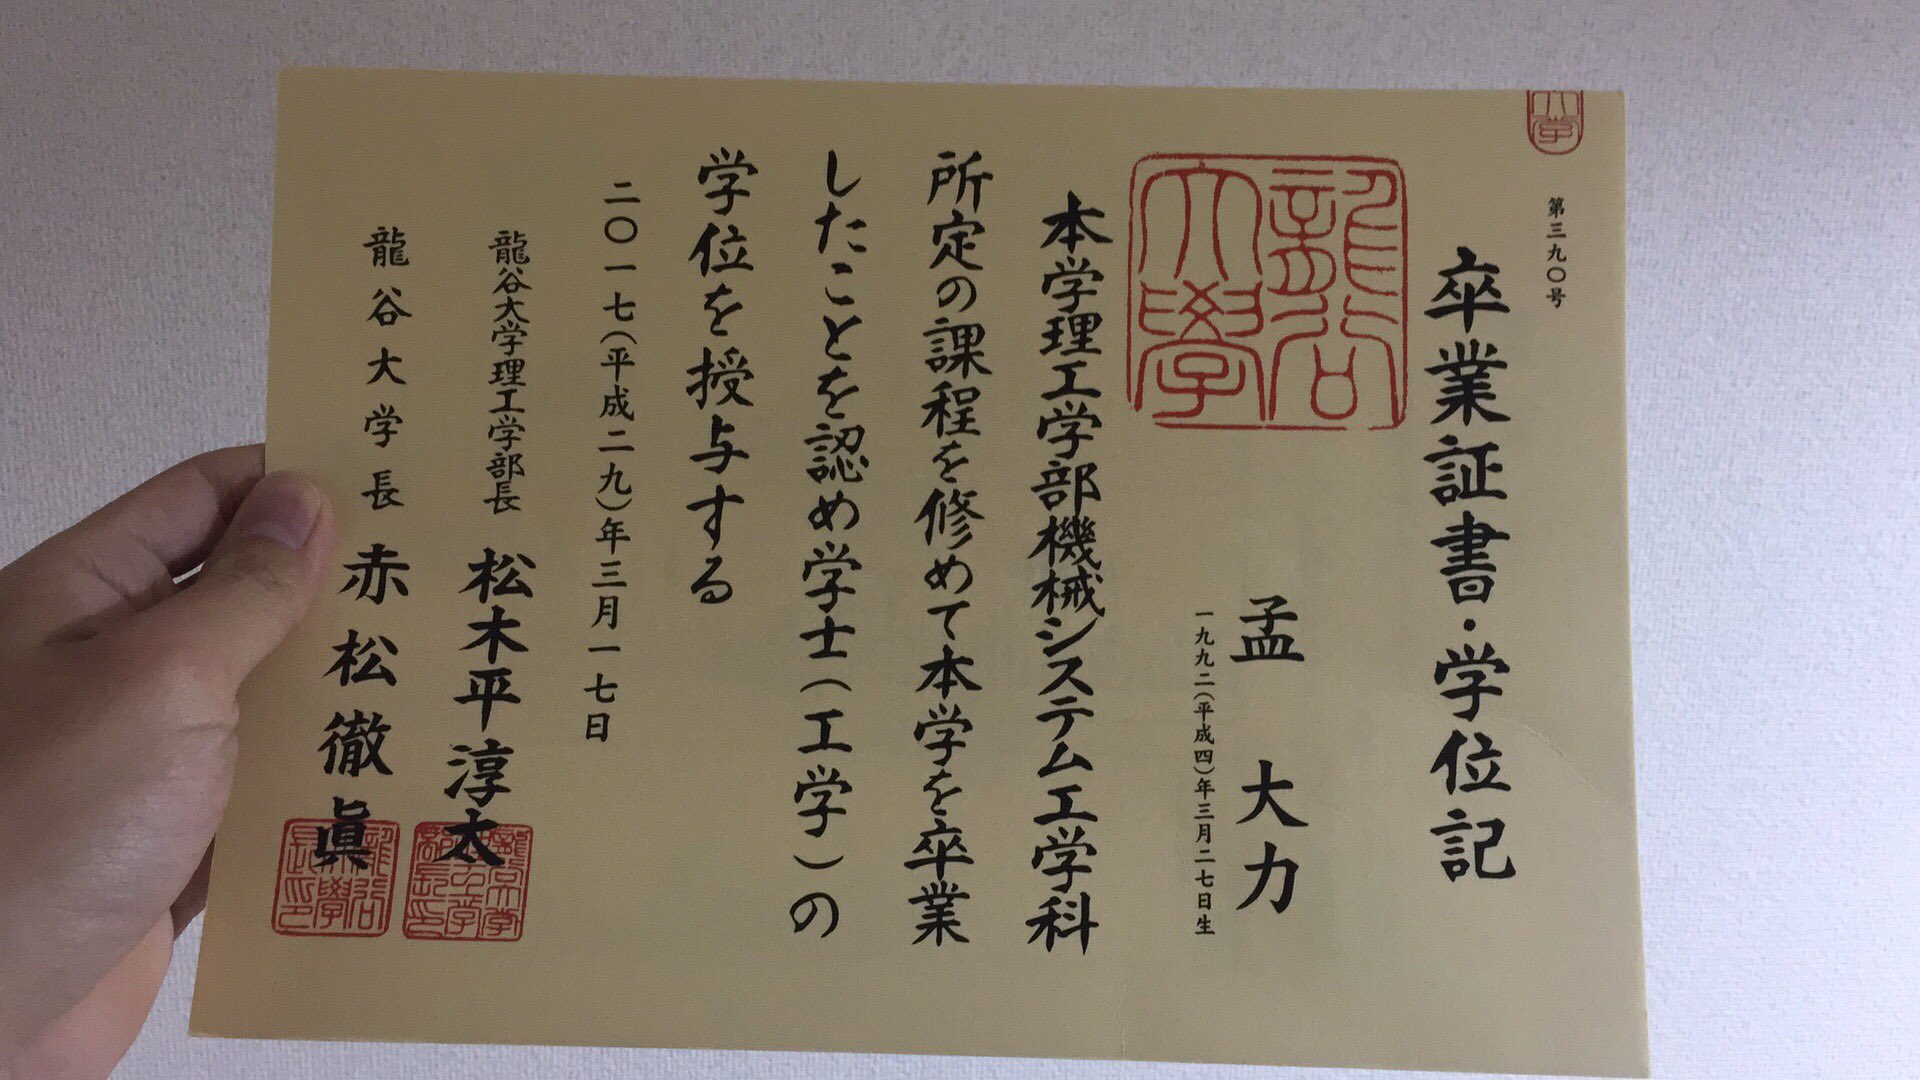 第三九〇号
卒業証書・学位記
龍谷大學
孟 大力
一九九二(平成四)年三月二七日生
本学理工学部機械システム工学科
所定の課程を修めて本学を卒業
したことを認め学士(工学)の
学位を授与する
二〇一七(平成二九)年三月一七日
龍谷大学理工学部長 松木平淳太
龍谷大学長 赤松徹眞